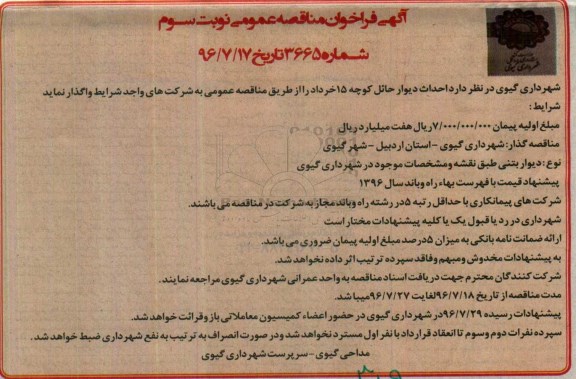 آگهی فراخوان مناقصه عمومی نوبت سوم
شماره ۳۶۶۵ تاریخ ۹۶/۷/۱۷
شهرداری گیوی در نظر دارد احداث دیوار حائل کوچه ۱۵ خرداد را از طریق مناقصه عمومی به شرکت های واجد شرایط واگذار نماید
شرایط :
مبلغ اولیه پیمان ۷/۰۰۰/۰۰۰/۰۰۰ ریال هفت میلیارد ریال
مناقصه گذار: شهرداری گیوی - استان اردبیل - شهر گیوی
نوع : دیوار بتنی طبق نقشه و مشخصات موجود در شهرداری گیوی
پیشنهاد قیمت با فهرست بهاء راه و باند سال ۱۳۹۶
شرکت های پیمانکاری با حداقل رتبه ۵ در رشته راه و باند مجاز به شرکت در مناقصه می باشند.
شهرداری در رد یا قبول یک یا کلیه پیشنهادات مختار است
ارائه ضمانت نامه بانکی به میزان ۵ درصد مبلغ اولیه پیمان ضروری می باشد.
به پیشنهادات مخدوش و مبهم و فاقد سپرده ترتیب اثر داده نخواهد شد.
شرکت کنندگان محترم جهت دریافت اسناد مناقصه به واحد عمرانی شهرداری گیوی مراجعه نمایند.
مدت مناقصه از تاریخ ۹۶/۷/۱۸ لغایت ۹۶/۷/۲۷ میباشد.
پیشنهادات رسیده ۹۶/۷/۲۹ در شهرداری گیوی در حضور اعضاء کمیسیون معاملاتی باز و قرائت خواهد شد.
سپرده نفرات دوم و سوم تا انعقاد قرارداد با نفر اول مسترد نخواهد شد و در صورت انصراف به ترتیب به نفع شهرداری ضبط خواهد شد.
مداحی گیوی - سرپرست شهرداری گیوی